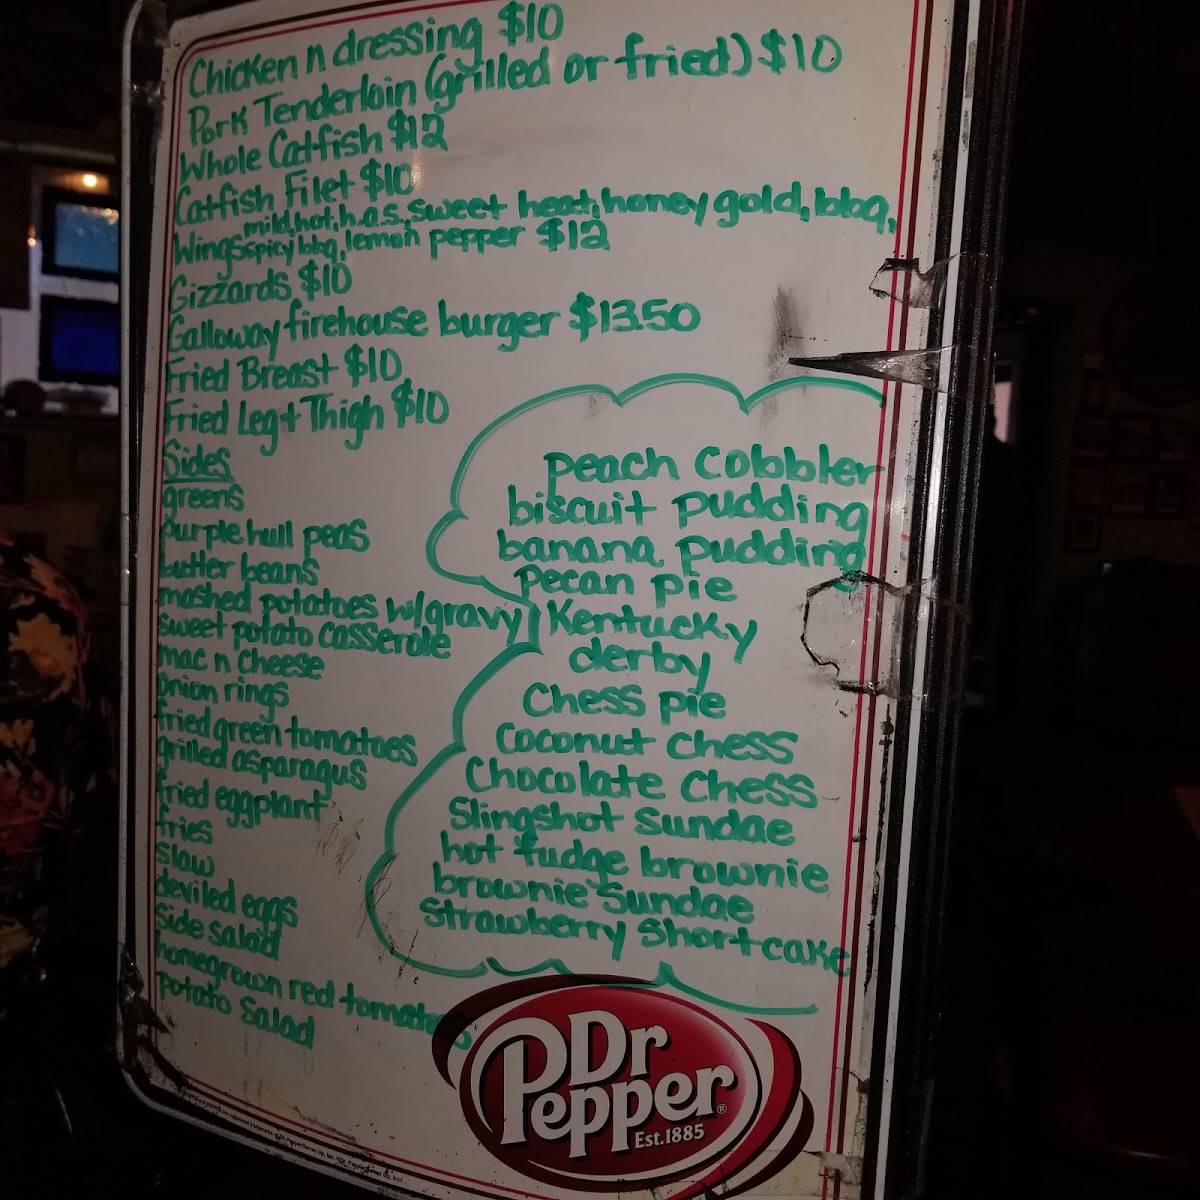 Chicken n dressing $10
Pork Tenderloin (grilled or fried) $10
Whole Catfish $12
Catfish Filet $10
mild, hot, h.a.s, sweet heat, honey gold, bbq,
Wings spicy bbq, lemon pepper $12
Gizzards $10
Galloway firehouse burger $13.50
Fried Breast $10
Fried Leg + Thigh $10
Sides
greens
purple hull peas
butter beans
mashed potatoes w/gravy
sweet potato casserole
mac n cheese
onion rings
fried green tomatoes
grilled asparagus
fried eggplant
fries
slaw
deviled eggs
side salad
homegrown red tomatoes
potato salad
peach cobbler
biscuit pudding
banana pudding
pecan pie
Kentucky
derby
Chess pie
Coconut chess
Chocolate Chess
Slingshot Sundae
hot fudge brownie
brownie Sundae
Strawberry Shortcake
Dr
Pepper®
Est.1885